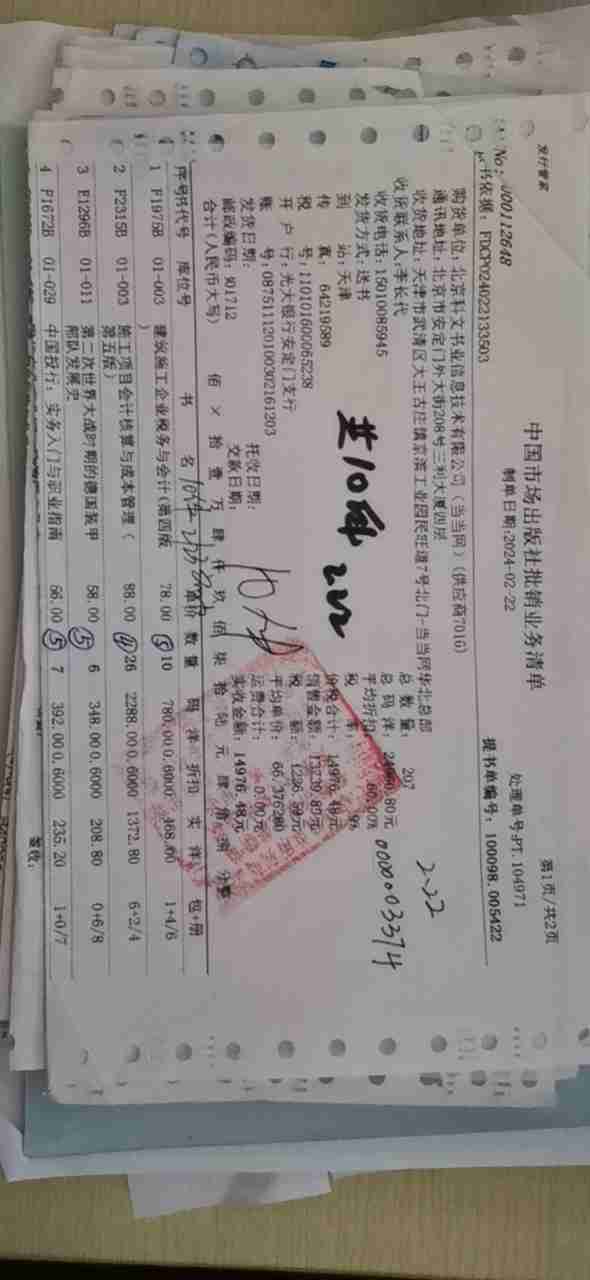 发行管家
中国市场出版社批销业务清单
第1页/共2页
No: 000112648
制单日期:2024-02-22
处理单号:PT.104971
书依据: FDCP024022133503
提书单编号: 100098.005422
购货单位: 北京科文书业信息技术有限公司(当当网)(供应商7016)
通讯地址: 北京市安定门外大街208号三利大厦四层
收货地址: 天津市武清区大王古庄镇京滨工业园民旺道7号北门-当当网华北总部
收货联系人:李长代
总数量: 207
2.22
收货电话: 15010085945
总码洋:
80元
0000003374
发货方式: 送书
平均折扣: 60.00%
到 站: 天津
税 率: 9%
共10件 2.22
传 真: 64219589
价税合计: 14976.48元
税 号: 110101600065238
销售金额: 13739.87元
开户行: 光大银行安定门支行
税 额: 1236.59元
账 号: 08751112010030216​1203
平均单价: 66.376280
发货日期:
托收日期:
运费合计: 0.00元
邮政编码: 301712
交款日期:
实收金额: 14976.48元
10件
合计(人民币大写) 佰 × 拾 壹 万 肆 仟 玖 佰 柒 拾 陆 元 肆 角 捌 分整
序号 书代号 库位号 书 名 单价 数量 码 洋 折扣 实 洋 包+册
1 F1975B 01-003 建筑施工企业税务与会计(第四版) 78.00 ⑤ 10 780.00 0.6000 468.00 1+4/6
2 F2315B 01-003 施工项目会计核算与成本管理(第五版) 88.00 26 2288.00 0.6000 1372.80 6+2/4
3 E1296B 01-011 第二次世界大战时期的德国装甲部队发展史 58.00 ⑤ 6 348.00 0.6000 208.80 0+6/8
4 F1672B 01-029 中国投行: 实务入门与职业指南 56.00 ⑤ 7 392.00 0.6000 235.20 1+0/7
签收: